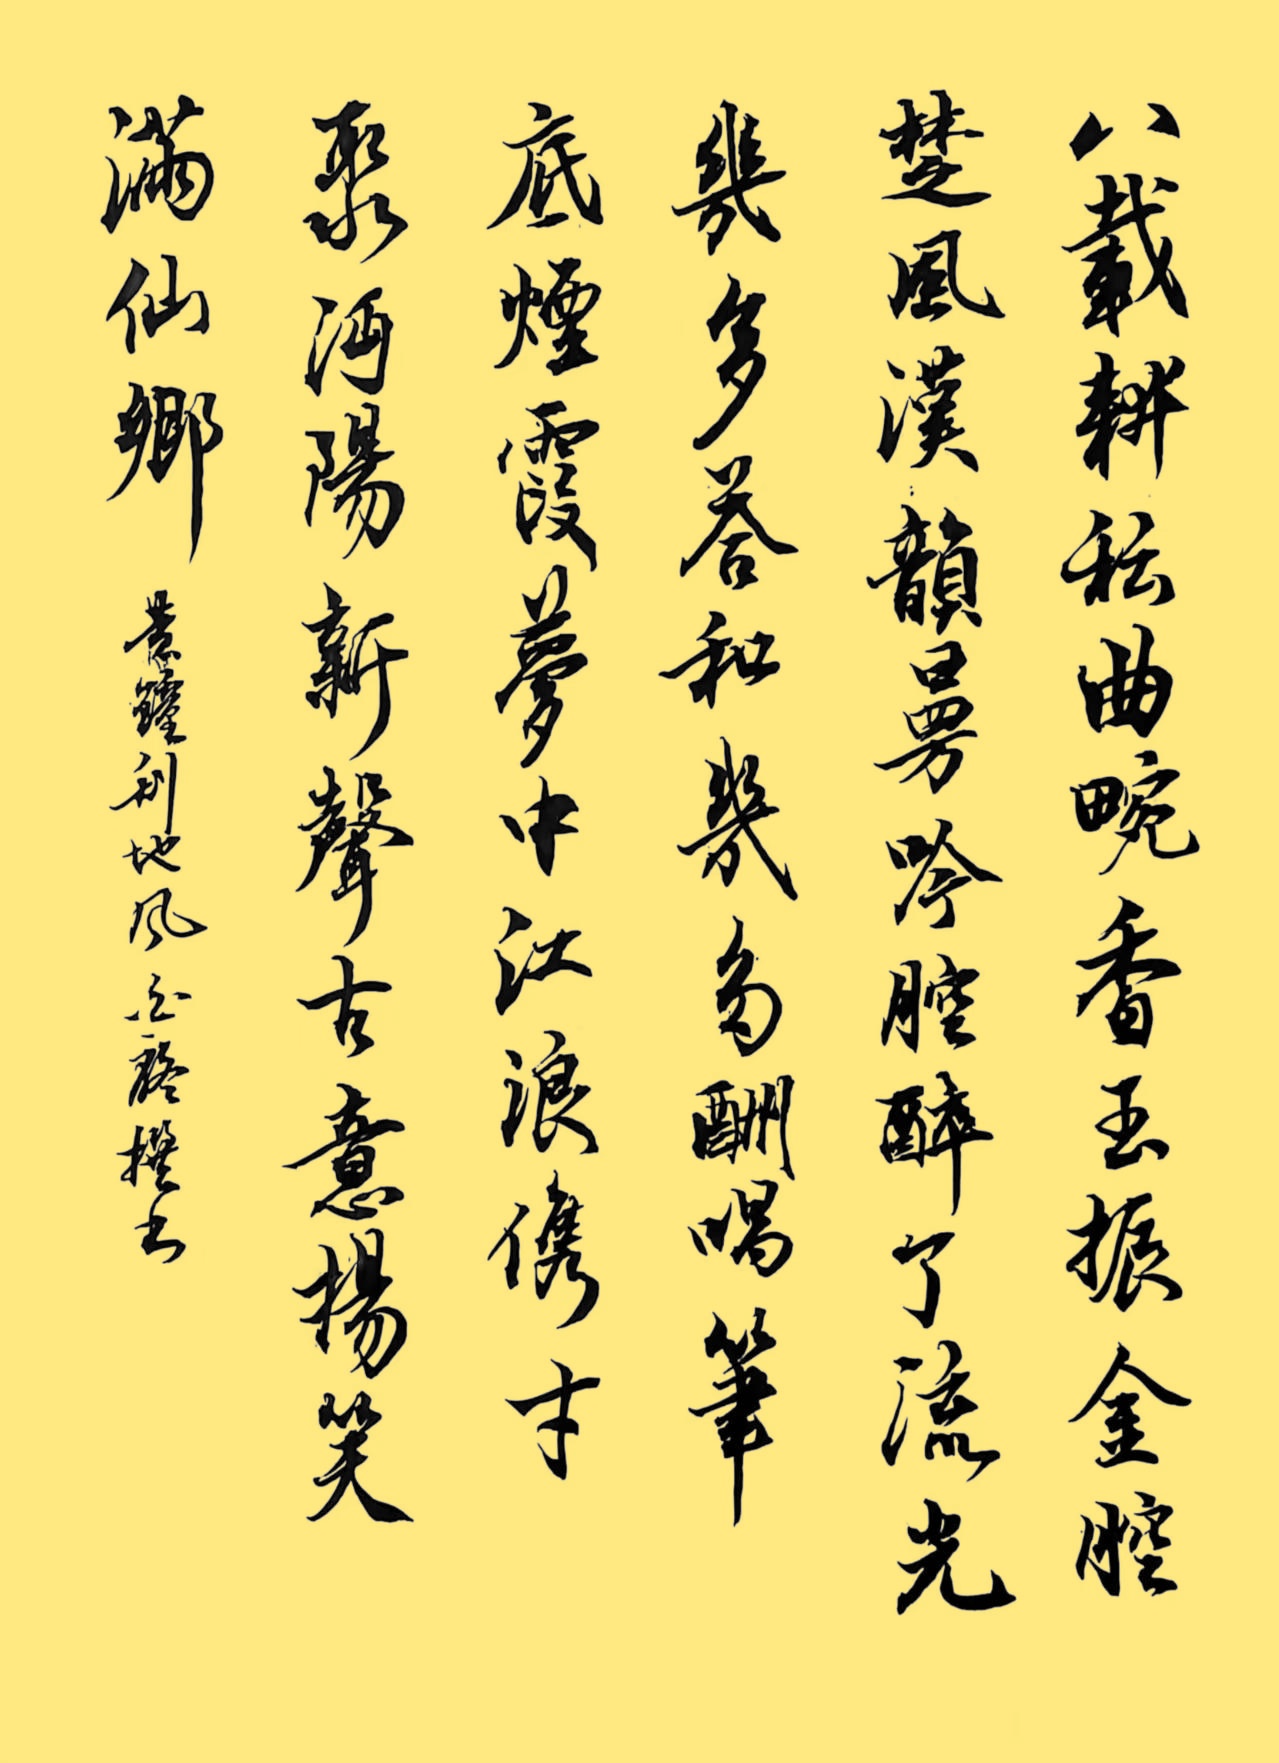 八載耕耘曲畹香玉振金腔
楚風漢韻曼吟腔醉了流光
幾多答和幾多酬唱筆
底煙霞夢中江浪儁才
聚沔陽新聲古意揚笑
滿仙鄉
利地風 撰书